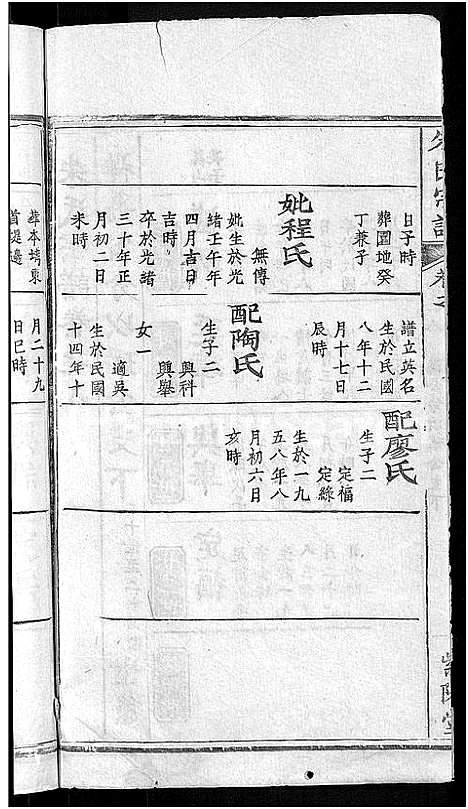 朱氏宗譜
紫陽堂
日子時
葬園地癸
丁兼子
妣程氏
無傳
妣生於光
緒壬午年
四月吉日
吉時
卒於光緒
三十年正
月初二日
未時
譜立英名
生於民國
八年十二
月十七日
辰時
配陶氏
生子二
興科
興舉
女一
適吳
生於民國
十四年十
配廖氏
生子二
定福
定綠
生於一九
五八年八
月初六日
亥時
葬本埼東
首堤邊
月二十九
日巳時